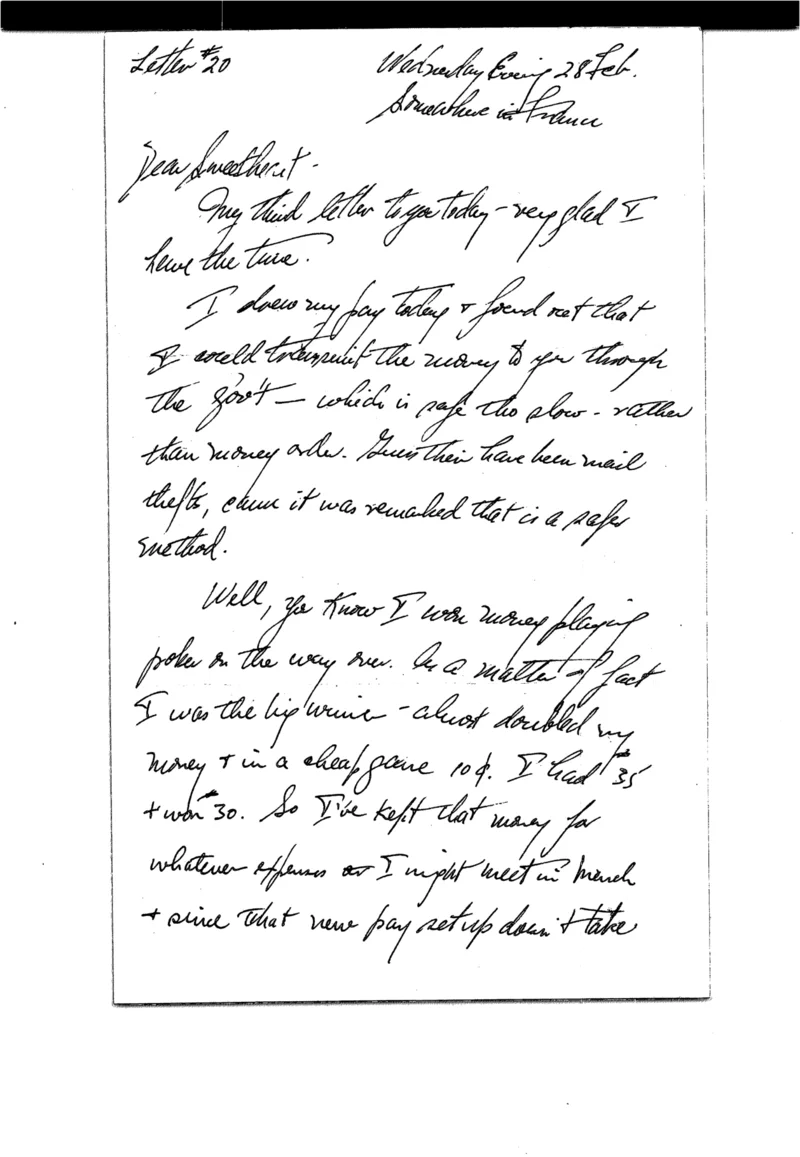 Letter #20
Wednesday Evening 28 Feb.
Somewhere in France
Dear Sweetheart -
My third letter to you today - very glad I
have the time.
I drew my pay today + found out that
I could transmit the money to you through
the gov't - which is safe tho slow - rather
than money order. Guess their have been mail
thefts, cause it was remarked that is a safer
method.
Well, you know I won money playing
poker on the way over. As a matter of fact
I was the big winner - almost doubled my
money + in a cheap game 10¢. I had $35
+ won $30. So I've kept that money for
whatever expenses I might meet in March
+ since that new pay set up doesn't take